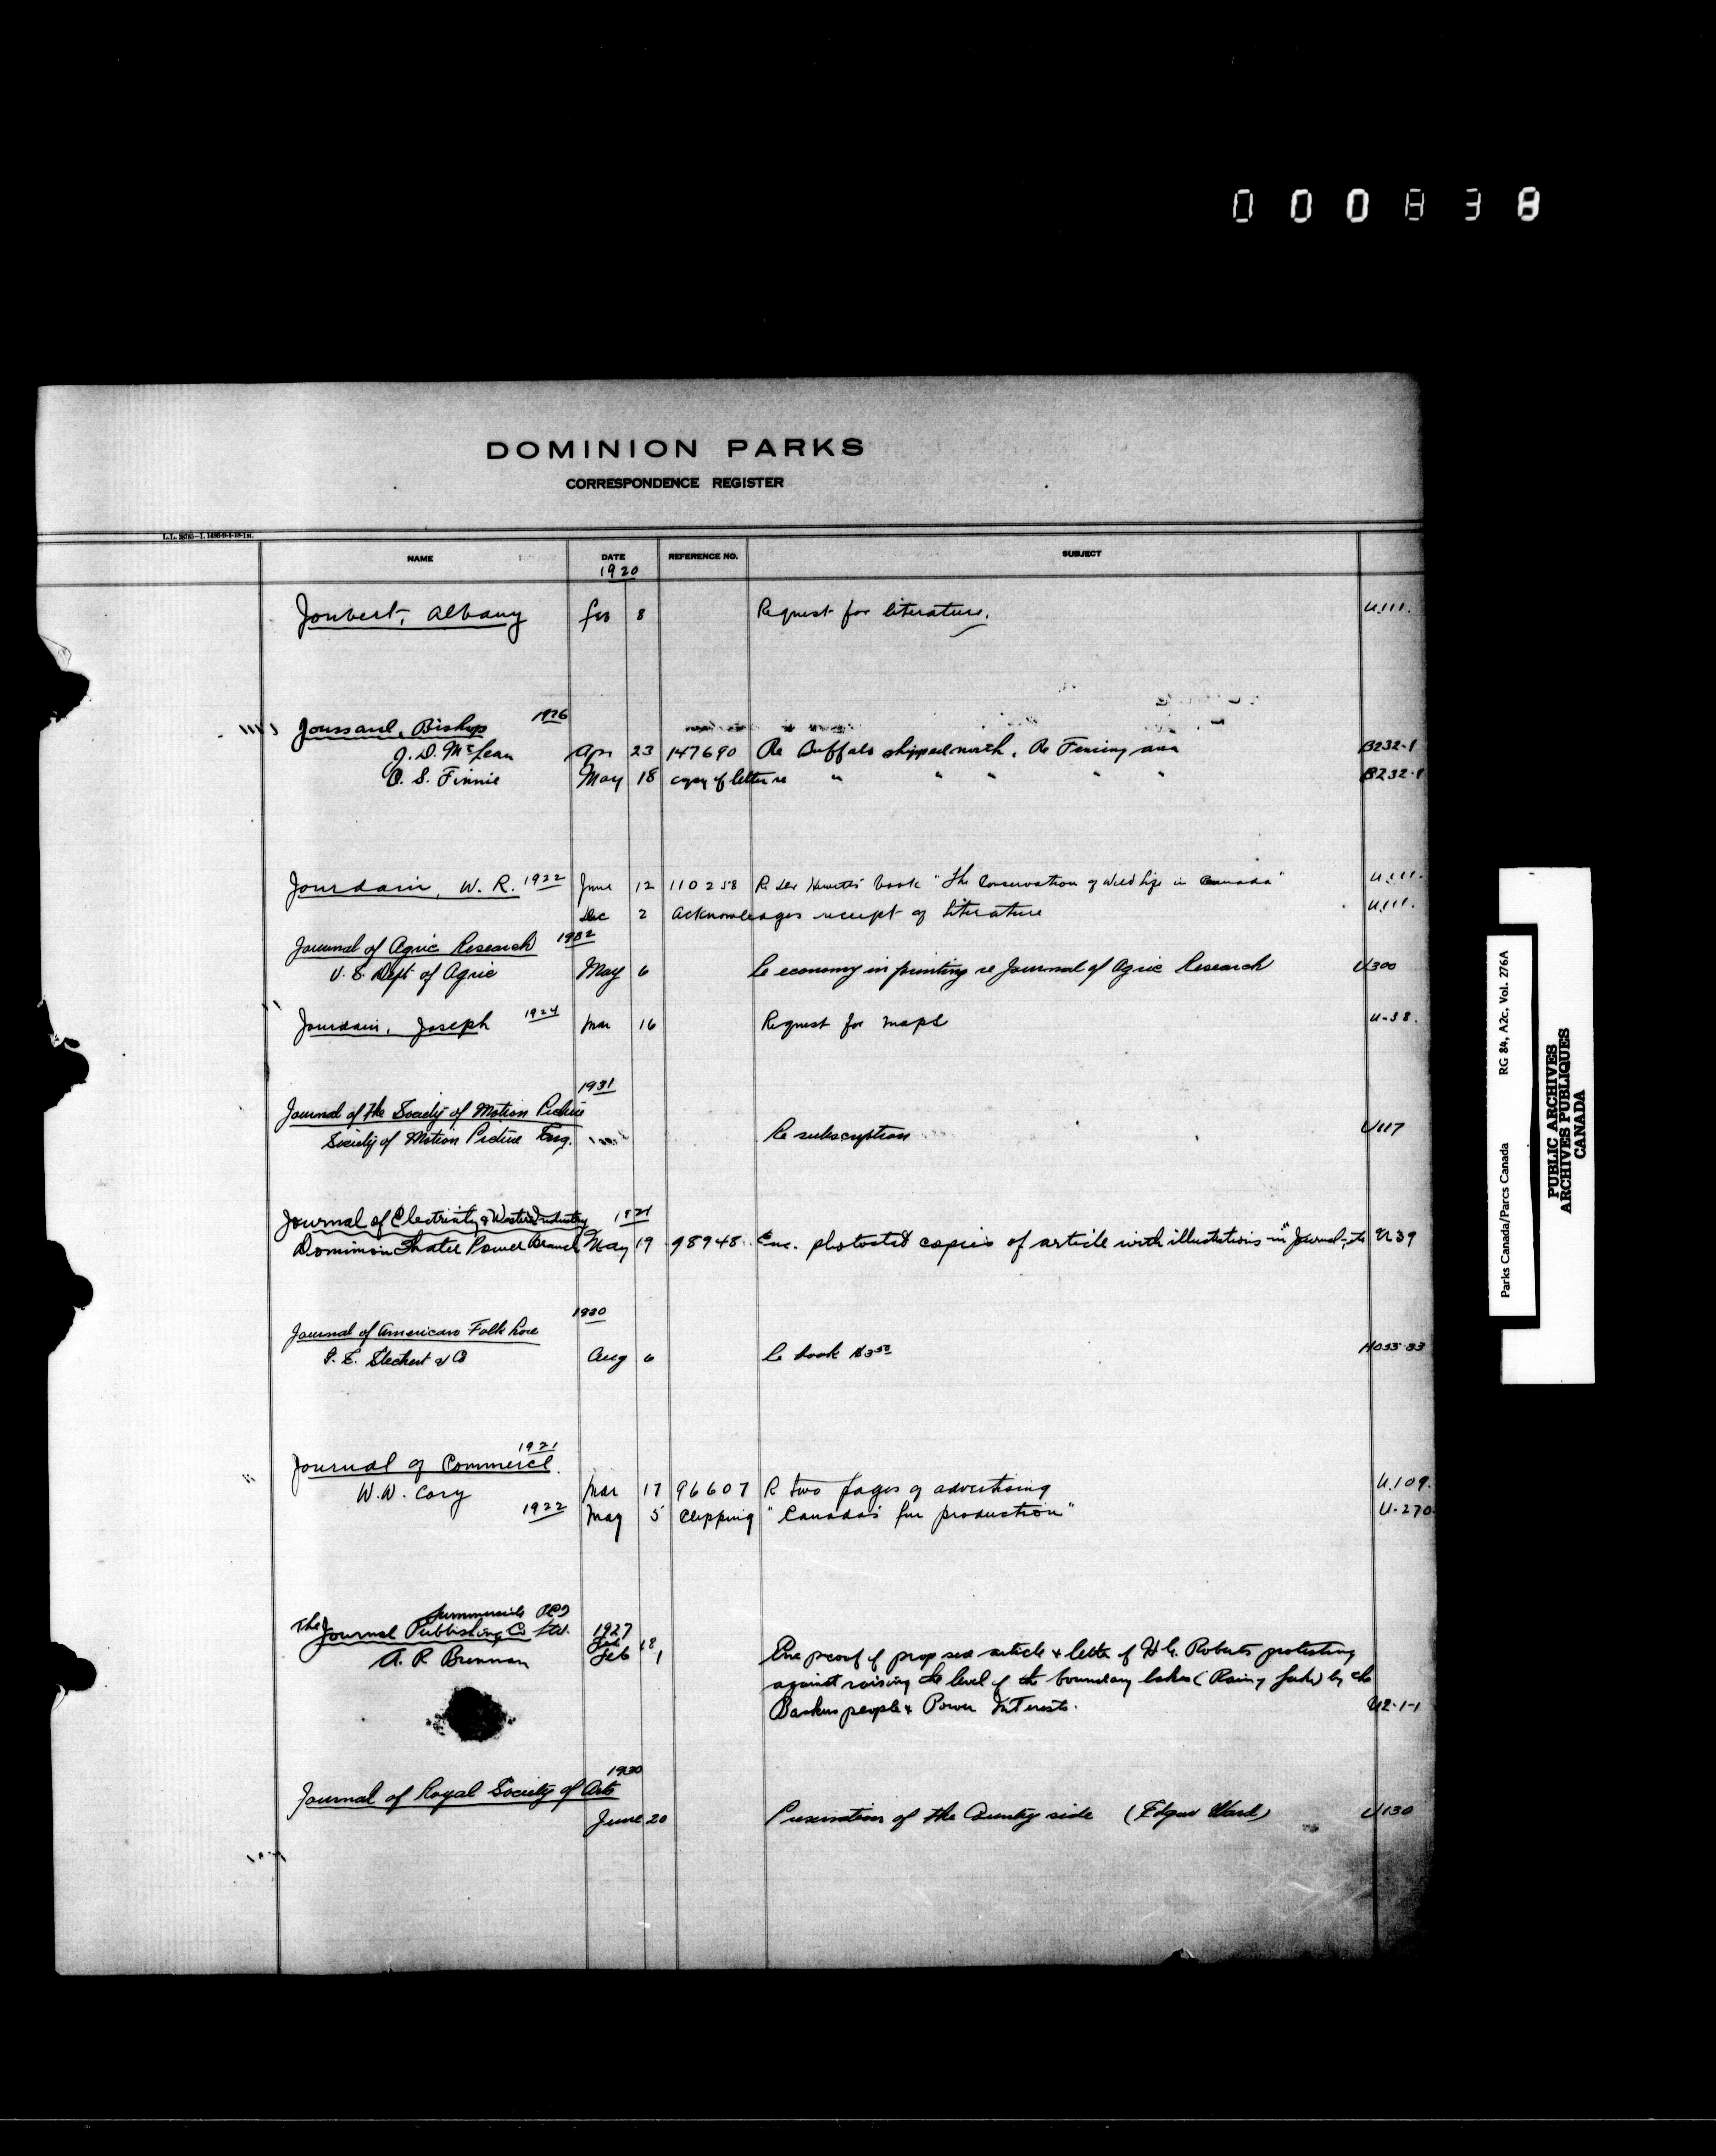 000838
DOMINION PARKS
CORRESPONDENCE REGISTER
NAME DATE REFERENCE NO. SUBJECT
1920
Joubert, Albany Feb 8 Request for literature. U.111.
Joussard, Bishop 1926
J. D. McLean Apr 23 147690 Re Buffalo shipped north. Re Fencing area B232-1
O. S. Finnie May 18 copy of letter re " " " " " B232-1
Jourdain, W. R. 1922 June 12 110258 R Hewitt's book "The Conservation of Wild Life in Canada" U.111.
Dec 2 Acknowledges receipt of literature U.111.
Journal of Agric Research 1932
U. S. Dept of Agric May 6 Re economy in printing re Journal of Agric Research U300
Jourdain, Joseph 1924 Mar 16 Request for maps U-38.
1931
Journal of the Society of Motion Picture
Society of Motion Picture Eng. Re subscription U117
Journal of Electricity & Western Industry 1921
Dominion Water Power Branch May 19 98948 Enc. photostd copies of article with illustrations in "Journal, etc U39
1930
Journal of American Folk Lore
G. E. Stechert & Co Aug 6 Re book $3.50 H055-33
1921
Journal of Commerce.
W. W. Cory Mar 17 96607 R two pages of advertising U.109.
1922 May 5 Clipping "Canada's fur production" U-270
Summerside PEI
The Journal Publishing Co Ltd. 1927
Feb 18
A. R. Brennan Feb 1 proof of article & letter of H G. Roberts protesting
against raising the level of the boundary lakes (Rainy Lake) by the
Backus people & Power Interests. U2-1-1
1930
Journal of Royal Society of Arts
June 20 Preservation of the Country side (Edgar Ward) U130
Parks Canada/Parcs Canada RG 84, A2c, Vol. 276A
PUBLIC ARCHIVES
ARCHIVES PUBLIQUES
CANADA